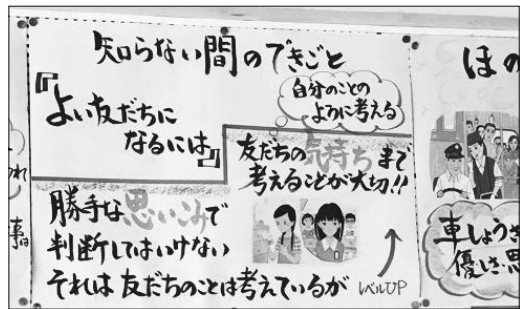 知らない間のできごと
『よい友だちに
なるには』
自分のことの
ように考える
友だちの気持ちまで
考えることが大切!!
勝手な思いこみで
判断してはいけない
それは友だちのことは考えているが
レベルUP
ほの
車しょうさ
優しさ思
われ
事は